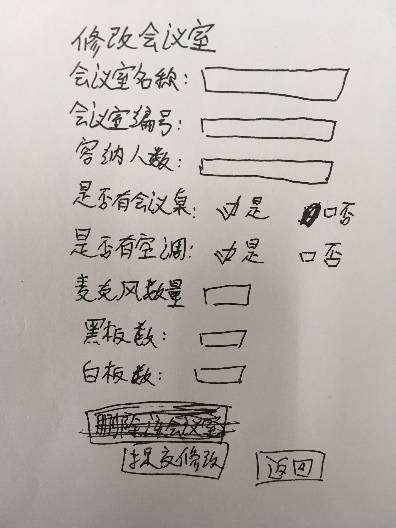 修改会议室
会议室名称：
会议室编号：
容纳人数：
是否有会议桌： 是 否
是否有空调： 是 否
麦克风数量
黑板数：
白板数：
删除该会议室
提交修改 返回